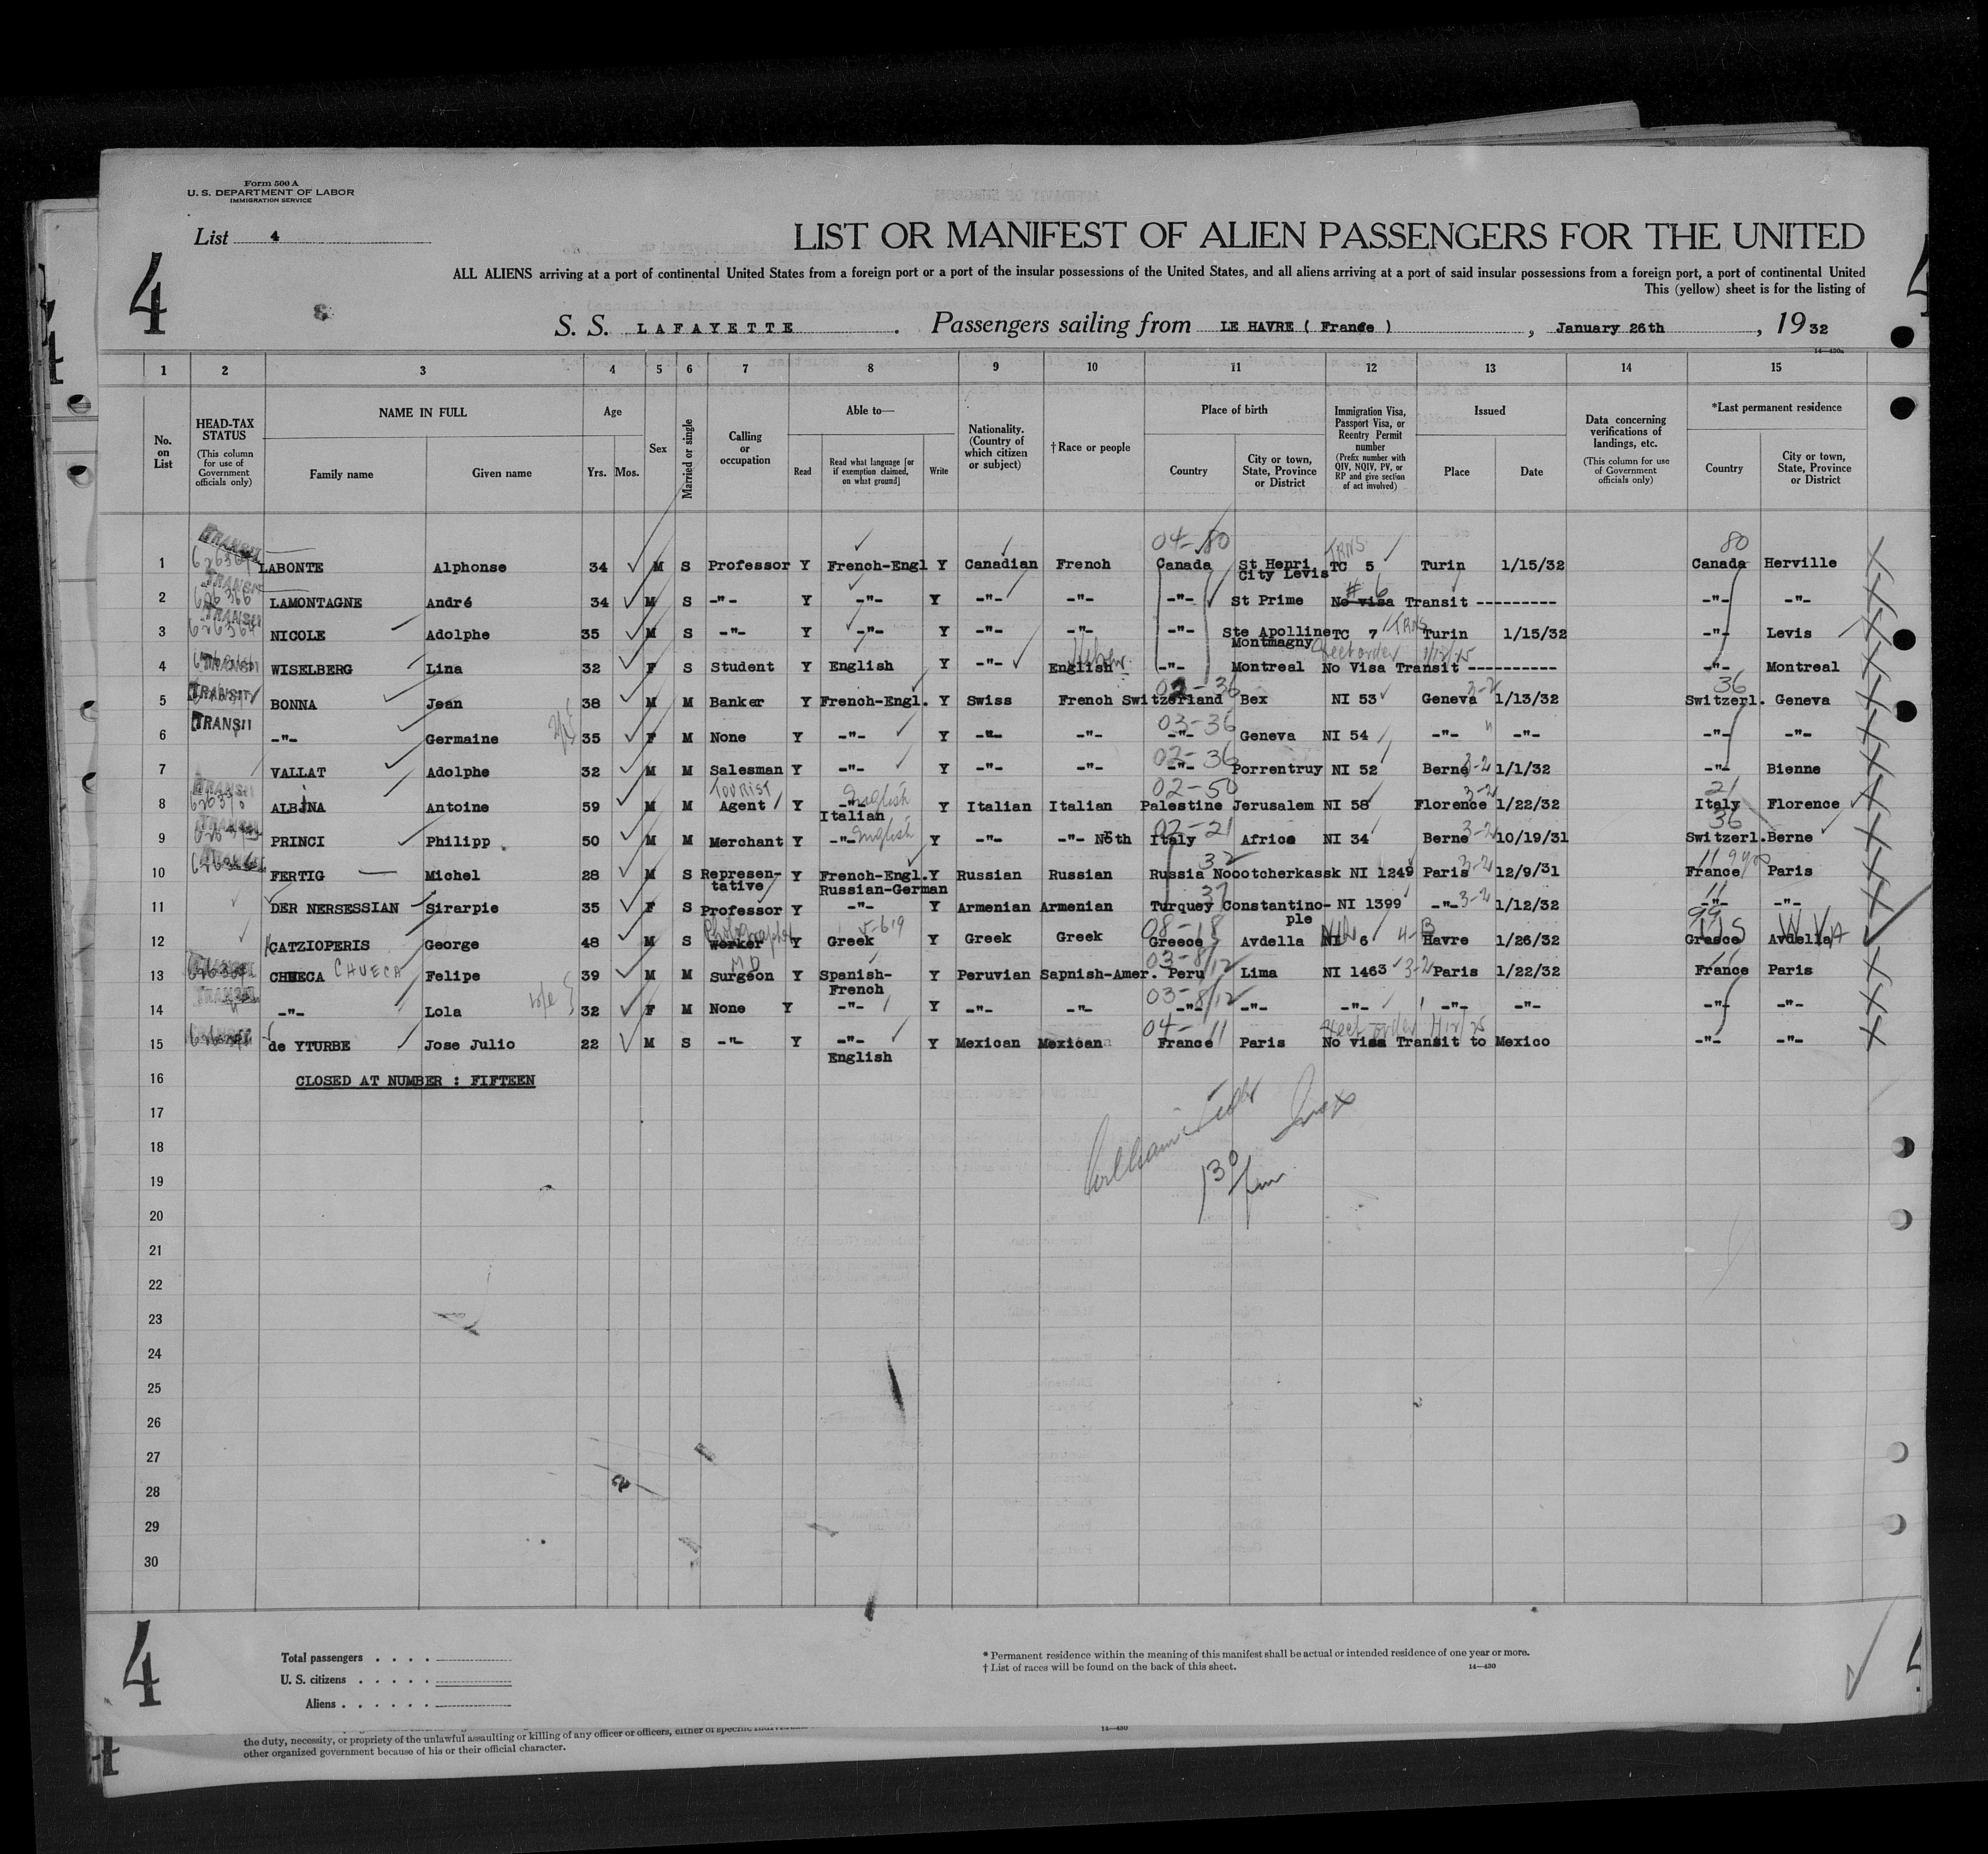 Form 500 A
U. S. DEPARTMENT OF LABOR
IMMIGRATION SERVICE
List 4
4
LIST OR MANIFEST OF ALIEN PASSENGERS FOR THE UNITED
ALL ALIENS arriving at a port of continental United States from a foreign port or a port of the insular possessions of the United States, and all aliens arriving at a port of said insular possessions from a foreign port, a port of continental United
This (yellow) sheet is for the listing of
S. S. LAFAYETTE . Passengers sailing from LE HAVRE ( France ) , January 26th , 1932
14—430a
1 2 3 4 5 6 7 8 9 10 11 12 13 14 15
No. on List
HEAD-TAX STATUS (This column for use of Government officials only)
NAME IN FULL Family name Given name
Age Yrs. Mos.
Sex
Married or single
Calling or occupation
Able to— Read Read what language [or if exemption claimed, on what ground] Write
Nationality. (Country of which citizen or subject)
† Race or people
Place of birth Country City or town, State, Province or District
Immigration Visa, Passport Visa, or Reentry Permit number (Prefix number with QIV, NQIV, PV, or RP and give section of act involved)
Issued Place Date
Data concerning verifications of landings, etc. (This column for use of Government officials only)
*Last permanent residence Country City or town, State, Province or District
04-80 TRNS. 80
1 TRANSIT LABONTE Alphonse 34 M S Professor Y French-Engl Y Canadian French Canada St Henri City Levis TC 5 Turin 1/15/32 Canada Herville
2 TRANSIT 626366 LAMONTAGNE André 34 M S -"- Y -"- Y -"- -"- -"- St Prime # 6 No visa Transit --------- -"- -"-
3 TRANSIT 626364 NICOLE Adolphe 35 M S -"- Y -"- Y -"- -"- -"- Ste Apolline Montmagny TC 7 TRNS Turin 1/15/32 -"- Levis
4 TRANSIT WISELBERG Lina 32 F S Student Y English Y -"- English Hebrew -"- Montreal No Visa Transit ---------- -"- Montreal
5 TRANSIT BONNA Jean 38 M M Banker Y French-Engl. Y Swiss French Switzerland 03-36 Bex NI 53 Geneva 3-2 1/13/32 36 Switzerl. Geneva
6 TRANSIT -"- Germaine 35 F M None Y -"- Y -"- -"- 03-36 -"- Geneva NI 54 -"- " -"- -"- -"-
7 VALLAT Adolphe 32 M M Salesman Y -"- Y -"- -"- 02-36 -"- Porrentruy NI 52 Berne 3-2 1/1/32 -"- Bienne
8 TRANSIT ALBINA Antoine 59 M M TOURIST Agent Y -"- English Italian Y Italian Italian 02-50 Palestine Jerusalem NI 58 Florence 3-2 1/22/32 21 Italy Florence
9 TRANSIT PRINCI Philipp 50 M M Merchant Y -"- English Y -"- -"- Noth 02-21 Italy Africo NI 34 Berne 3-2 10/19/31 36 Switzerl. Berne
10 FERTIG Michel 28 M S Represen-tative Y French-Engl. Russian-German Y Russian Russian 32 Russia Noootcherkassk NI 1249 Paris 3-2 12/9/31 11 France Paris
11 DER NERSESSIAN Sirarpie 35 F S Professor Y -"- Y Armenian Armenian 37 Turquey Constantino-ple NI 1399 -"- 3-2 1/12/32 11 -"- -"-
12 CATZIOPERIS George 48 M S Photographer worker Y 5-619 Greek Y Greek Greek 08-18 Greece Avdella NI 6 4-B Havre 1/26/32 99 US Greece W VA Avdella
13 CHUECA CHUECA Felipe 39 M M MD Surgeon Y Spanish-French Y Peruvian Sapnish-Amer. 03-8/12 Peru Lima NI 1463 3-2 Paris 1/22/32 11 France Paris
14 TRANSIT -"- Lola wife 32 F M None Y -"- Y -"- -"- 03-8/12 -"- -"- -"- -"- -"- -"- -"-
15 TRANSIT de YTURBE Jose Julio 22 M S -"- Y -"- English Y Mexican Mexican 04-11 France Paris No visa Transit to Mexico -"- -"-
16 CLOSED AT NUMBER : FIFTEEN
17
18
19
20
21
22
23
24
25
26
27
28
29
30
4
Total passengers . . . .
U. S. citizens . . . . .
Aliens . . . . . .
* Permanent residence within the meaning of this manifest shall be actual or intended residence of one year or more.
† List of races will be found on the back of this sheet. 14—430
the duty, necessity, or propriety of the unlawful assaulting or killing of any officer or officers, either of specific
14—430
other organized government because of his or their official character.